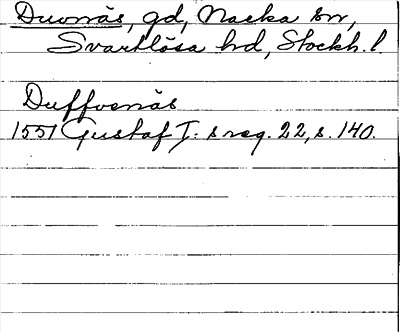 Duvnäs, gd, Nacka sn,
Svartlösa hd, Stockh. l.
Duffvenäs
1551 Gustaf I. s reg. 22, s. 140.